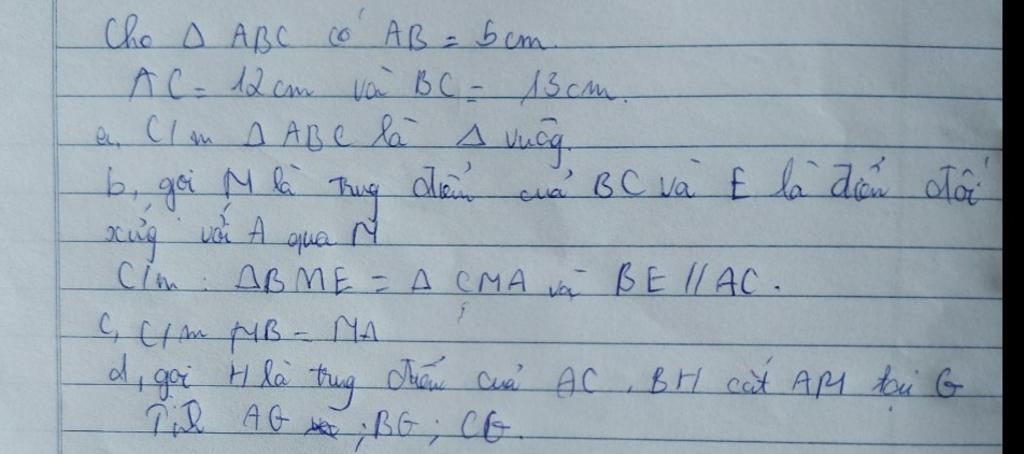 Cho Δ ABC có AB = 5cm
AC = 12cm và BC = 13cm.
a, C/m Δ ABC là Δ vuôg.
b, gọi M là trug điểm cuả BC và E là điểm đối
xứg với A qua M
C/m : ΔBME = Δ CMA và BE // AC.
c, C/m MB = MA
d, gọi H là trug điểm cuả AC, BH cắt AM tại G
Tính AG ; BG ; CG.